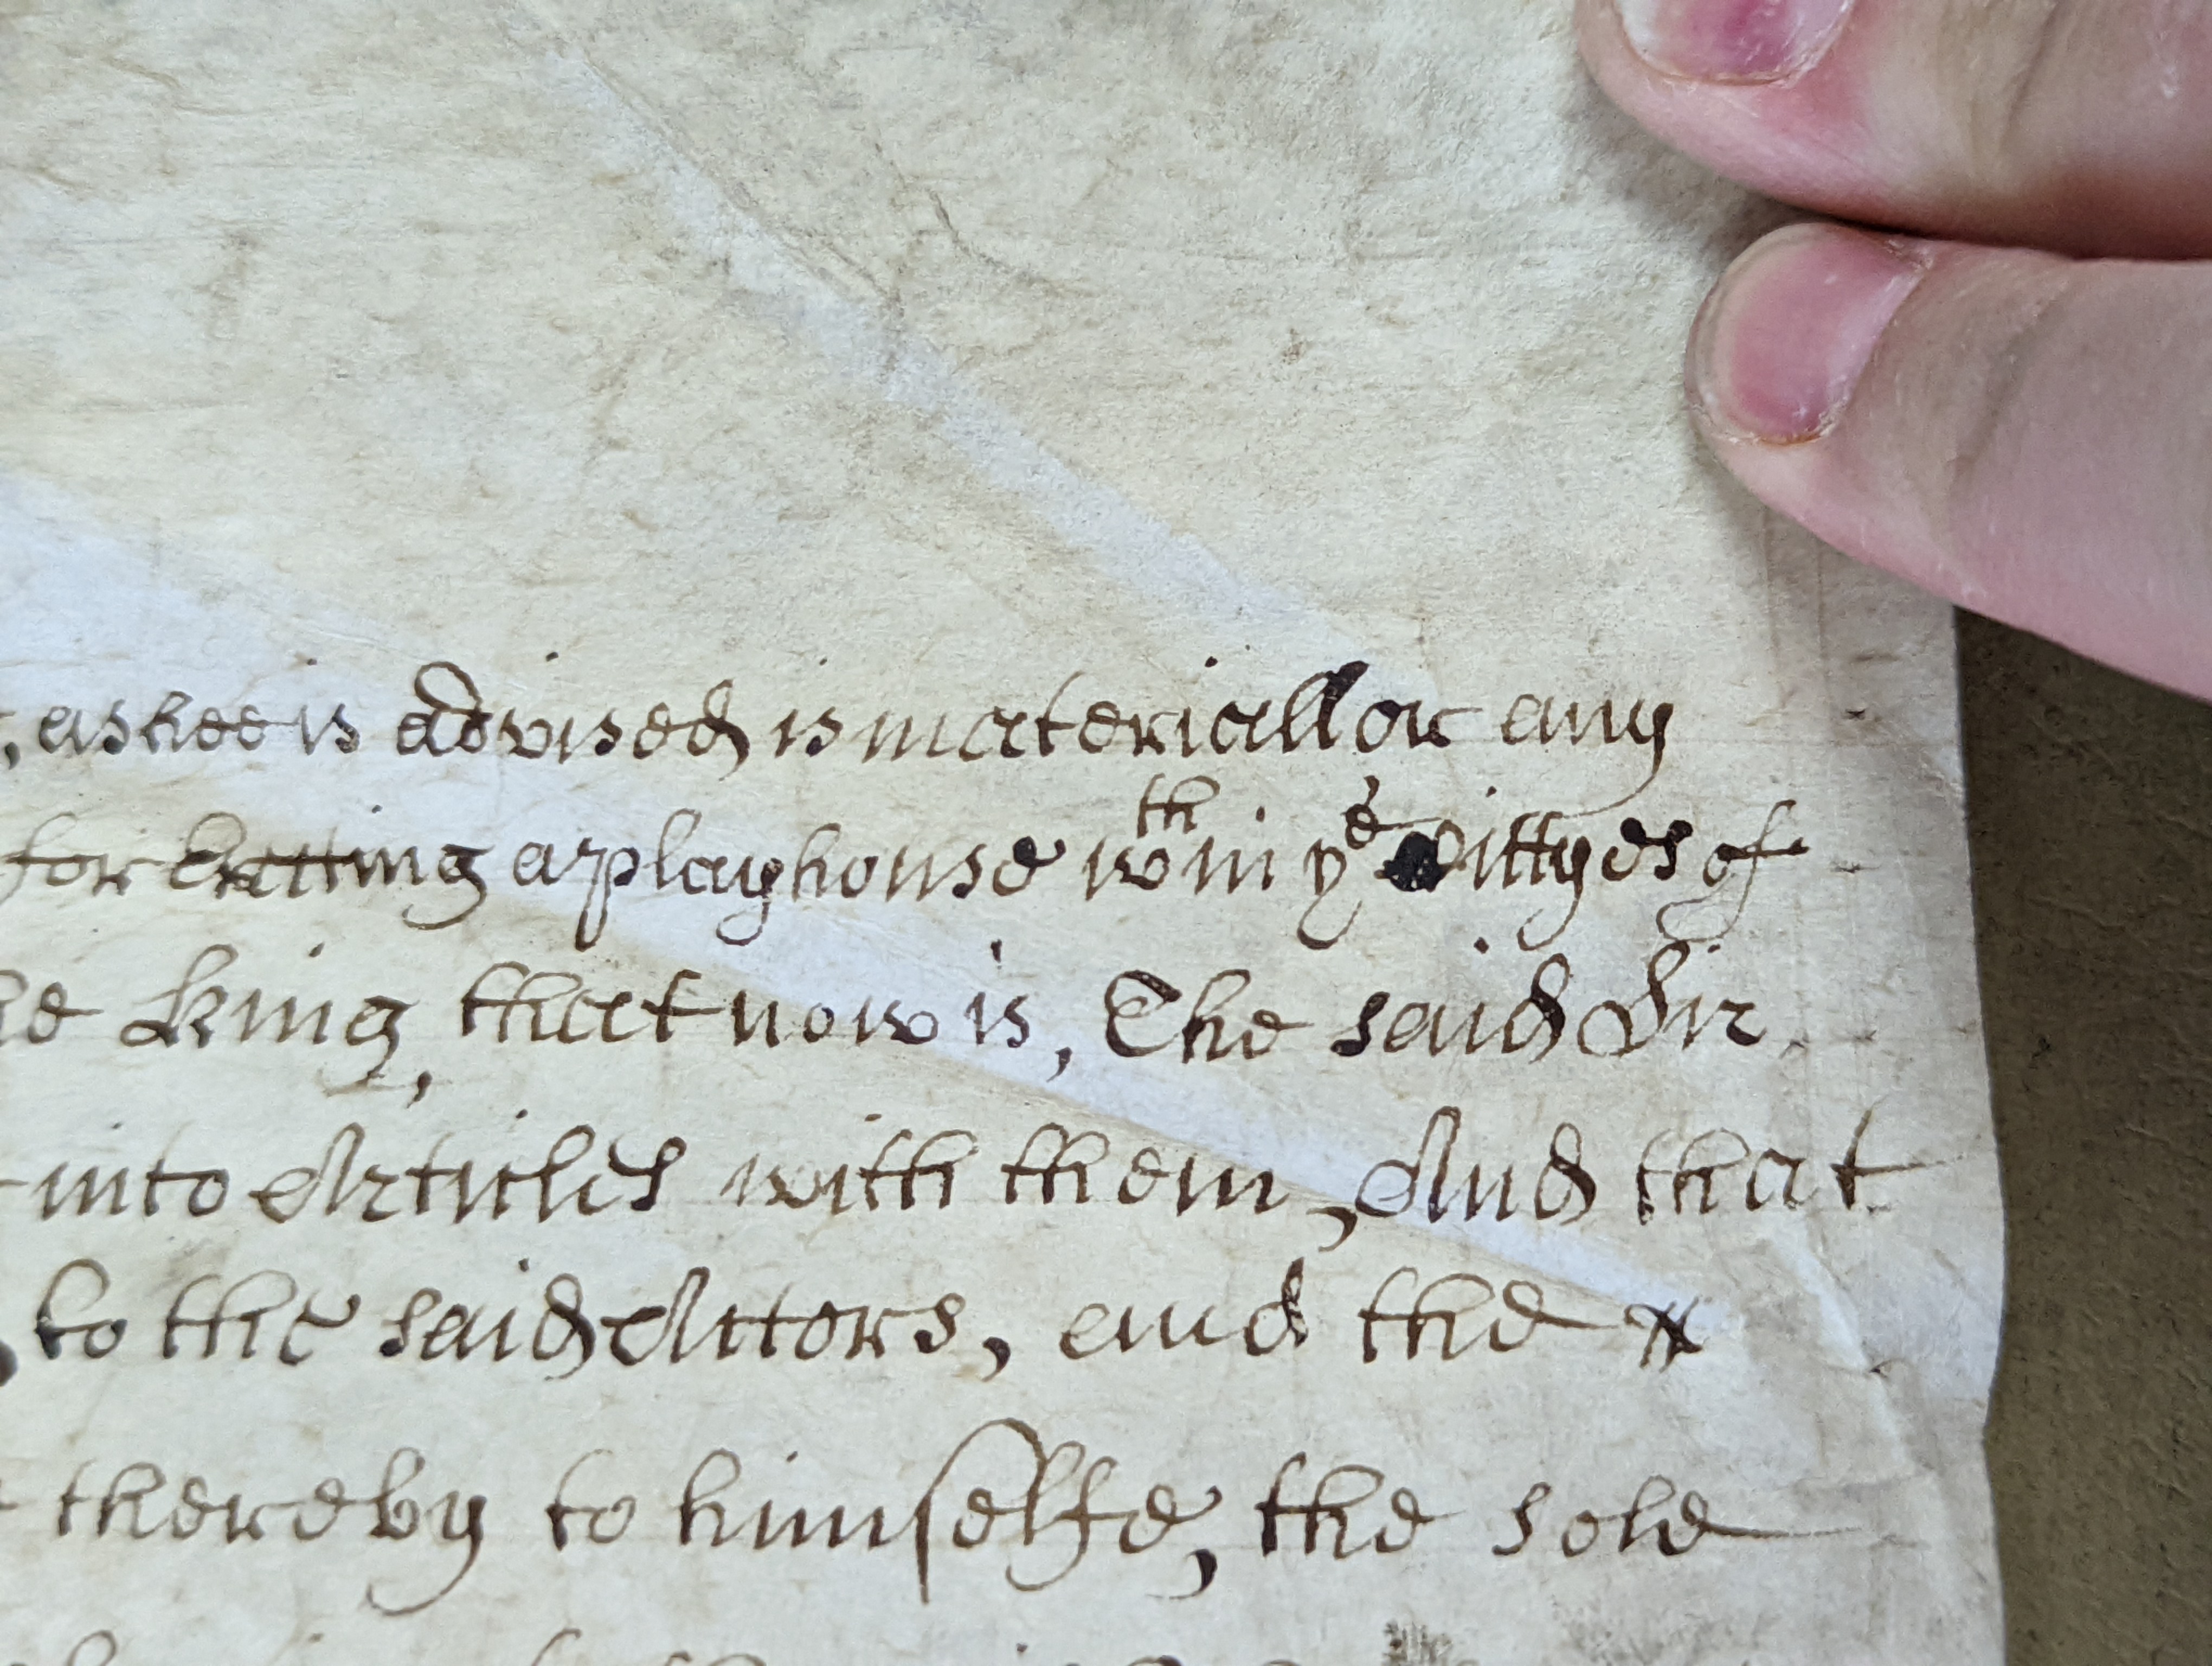 , as hee is advised is materiall or any
for Erecting a playhouse wth in ye Cittyes of
King, that now is, The said Sir
into Articles with them, And that
to the said Actors, and the
thereby to himselfe, the sole